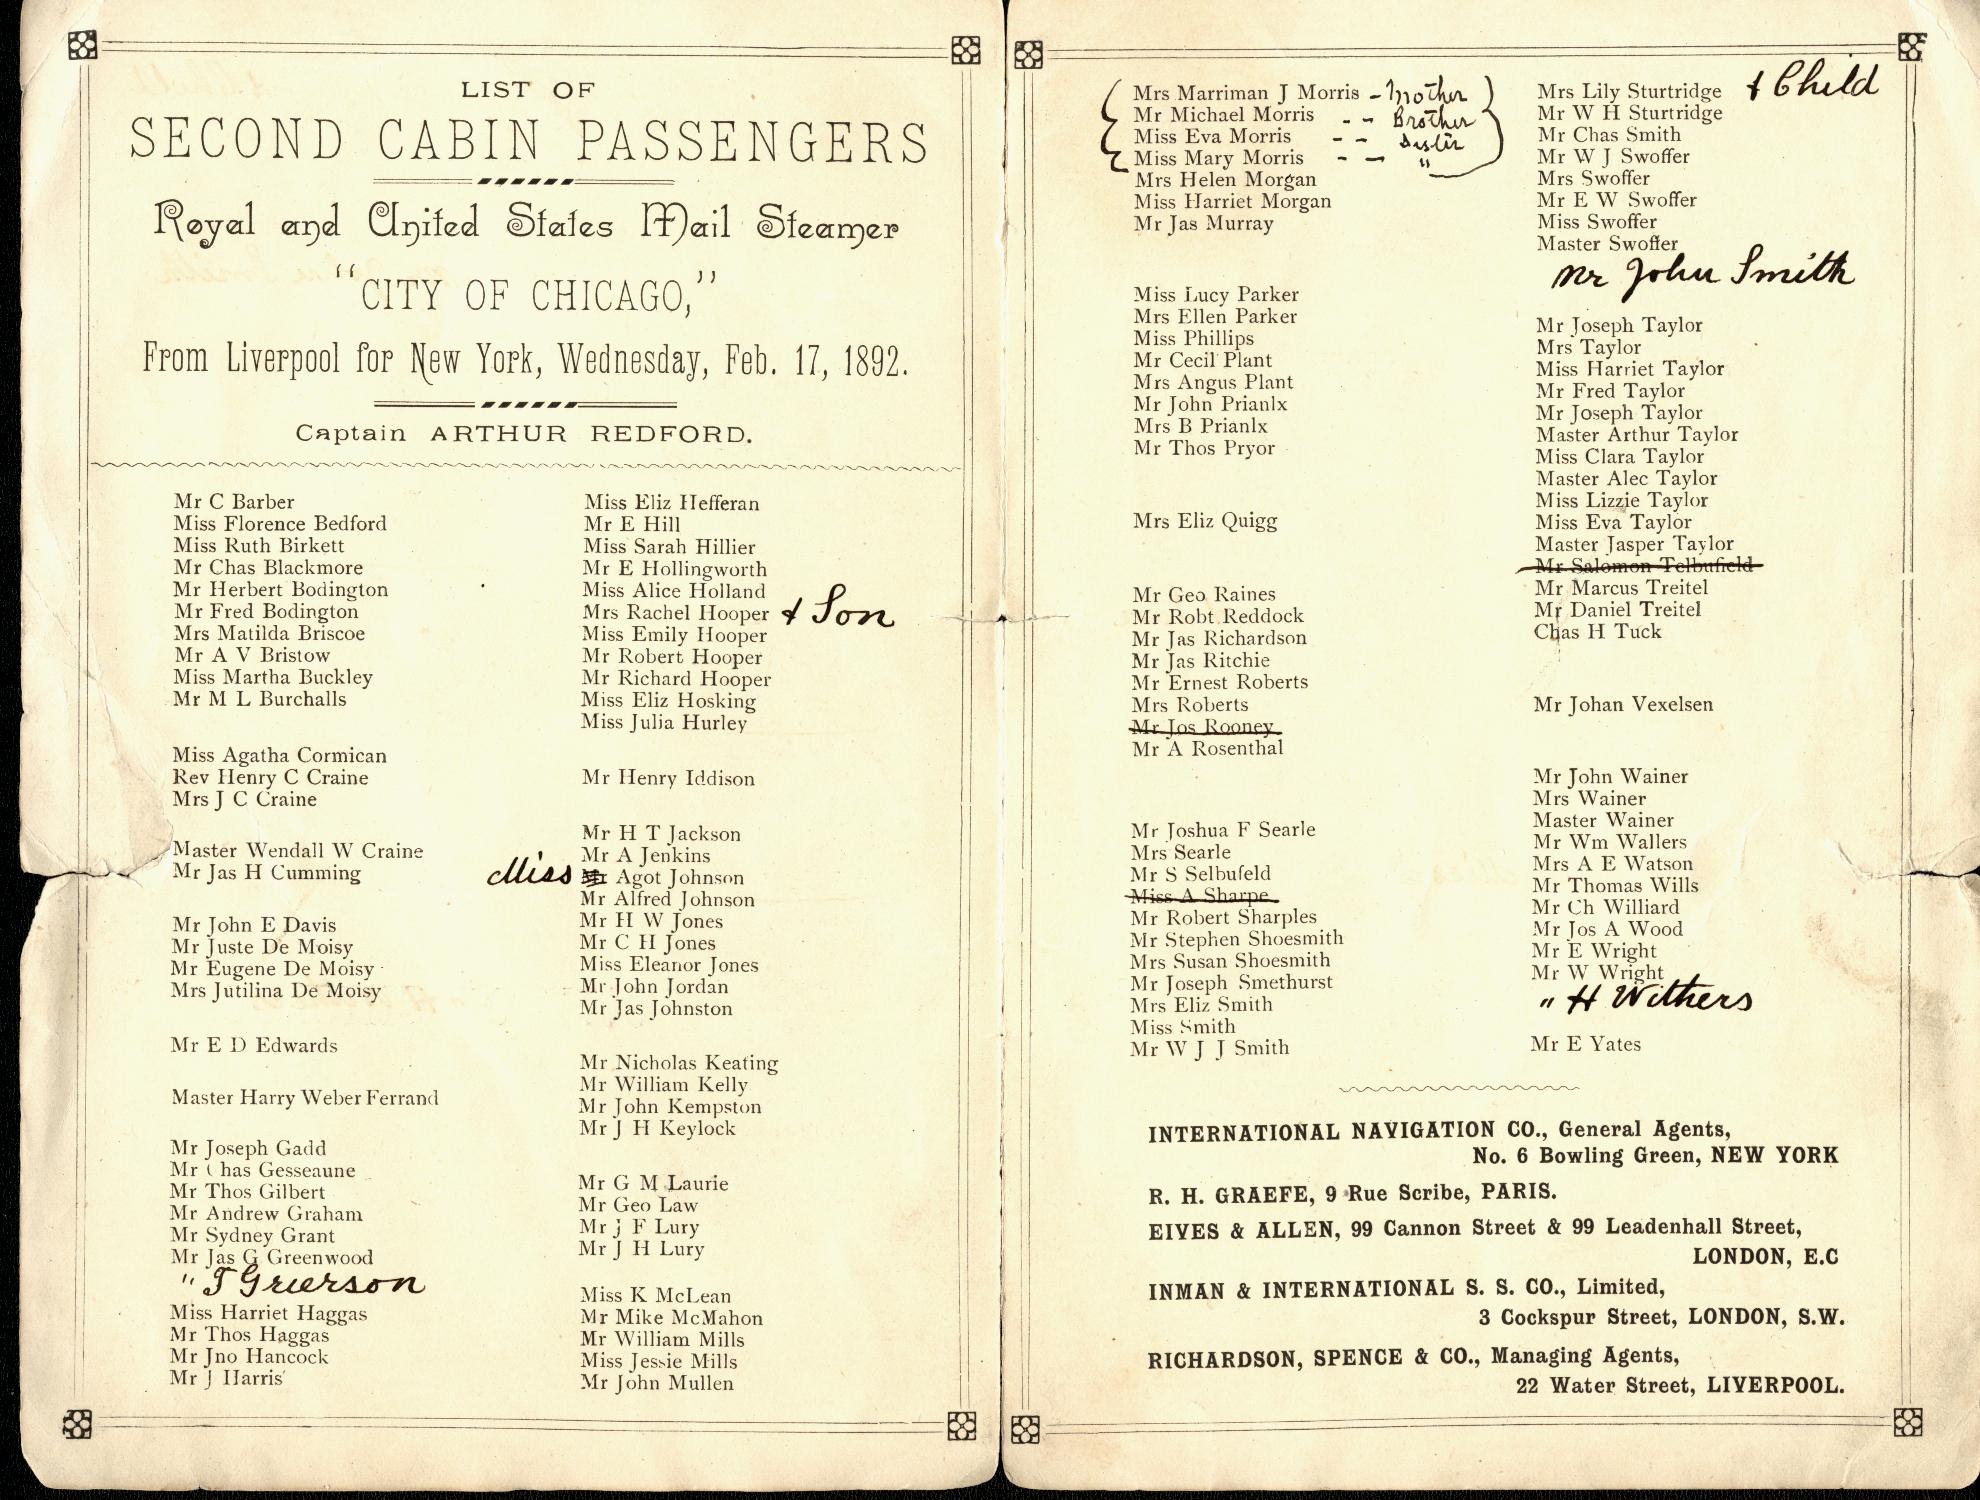 LIST OF
SECOND CABIN PASSENGERS
Royal and United States Mail Steamer
"CITY OF CHICAGO,"
From Liverpool for New York, Wednesday, Feb. 17, 1892.
Captain ARTHUR REDFORD.
Mr C Barber
Miss Florence Bedford
Miss Ruth Birkett
Mr Chas Blackmore
Mr Herbert Bodington
Mr Fred Bodington
Mrs Matilda Briscoe
Mr A V Bristow
Miss Martha Buckley
Mr M L Burchalls
Miss Agatha Cormican
Rev Henry C Craine
Mrs J C Craine
Master Wendall W Craine
Mr Jas H Cumming
Mr John E Davis
Mr Juste De Moisy
Mr Eugene De Moisy
Mrs Jutilina De Moisy
Mr E D Edwards
Master Harry Weber Ferrand
Mr Joseph Gadd
Mr Chas Gesseaune
Mr Thos Gilbert
Mr Andrew Graham
Mr Sydney Grant
Mr Jas G Greenwood
" T Grierson
Miss Harriet Haggas
Mr Thos Haggas
Mr Jno Hancock
Mr J Harris
Miss Eliz Hefferan
Mr E Hill
Miss Sarah Hillier
Mr E Hollingworth
Miss Alice Holland
Mrs Rachel Hooper & Son
Miss Emily Hooper
Mr Robert Hooper
Mr Richard Hooper
Miss Eliz Hosking
Miss Julia Hurley
Mr Henry Iddison
Mr H T Jackson
Mr A Jenkins
Miss Mr Agot Johnson
Mr Alfred Johnson
Mr H W Jones
Mr C H Jones
Miss Eleanor Jones
Mr John Jordan
Mr Jas Johnston
Mr Nicholas Keating
Mr William Kelly
Mr John Kempston
Mr J H Keylock
Mr G M Laurie
Mr Geo Law
Mr J F Lury
Mr J H Lury
Miss K McLean
Mr Mike McMahon
Mr William Mills
Miss Jessie Mills
Mr John Mullen
Mrs Marriman J Morris - Mother
Mr Michael Morris - - Brother
Miss Eva Morris - - Sister
Miss Mary Morris - - "
Mrs Helen Morgan
Miss Harriet Morgan
Mr Jas Murray
Miss Lucy Parker
Mrs Ellen Parker
Miss Phillips
Mr Cecil Plant
Mrs Angus Plant
Mr John Prianlx
Mrs B Prianlx
Mr Thos Pryor
Mrs Eliz Quigg
Mr Geo Raines
Mr Robt Reddock
Mr Jas Richardson
Mr Jas Ritchie
Mr Ernest Roberts
Mrs Roberts
Mr Jos Rooney
Mr A Rosenthal
Mr Joshua F Searle
Mrs Searle
Mr S Selbufeld
Miss A Sharpe
Mr Robert Sharples
Mr Stephen Shoesmith
Mrs Susan Shoesmith
Mr Joseph Smethurst
Mrs Eliz Smith
Miss Smith
Mr W J J Smith
Mrs Lily Sturtridge & Child
Mr W H Sturtridge
Mr Chas Smith
Mr W J Swoffer
Mrs Swoffer
Mr E W Swoffer
Miss Swoffer
Master Swoffer
Mr John Smith
Mr Joseph Taylor
Mrs Taylor
Miss Harriet Taylor
Mr Fred Taylor
Mr Joseph Taylor
Master Arthur Taylor
Miss Clara Taylor
Master Alec Taylor
Miss Lizzie Taylor
Miss Eva Taylor
Master Jasper Taylor
Mr Salomon Telbufield
Mr Marcus Treitel
Mr Daniel Treitel
Chas H Tuck
Mr Johan Vexelsen
Mr John Wainer
Mrs Wainer
Master Wainer
Mr Wm Wallers
Mrs A E Watson
Mr Thomas Wills
Mr Ch Williard
Mr Jos A Wood
Mr E Wright
Mr W Wright
" H Withers
Mr E Yates
INTERNATIONAL NAVIGATION CO., General Agents,
No. 6 Bowling Green, NEW YORK
R. H. GRAEFE, 9 Rue Scribe, PARIS.
EIVES & ALLEN, 99 Cannon Street & 99 Leadenhall Street,
LONDON, E.C
INMAN & INTERNATIONAL S. S. CO., Limited,
3 Cockspur Street, LONDON, S.W.
RICHARDSON, SPENCE & CO., Managing Agents,
22 Water Street, LIVERPOOL.